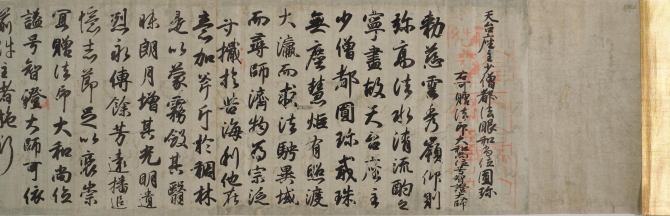 天台座主少僧都法眼和尚位圓珍
右可贈法印大和尚位号智證大師
勅慈雲秀嶺仰則
弥高法水清流酌之
寧盡故天台座主
少僧都圓珍戒珠
無塵慧炬有照渡
大瀛而求法騁異域
而尋師濟物為宗泛
舟檝於苦海利他在
意加斧斤於稠林
是以蒙霧斂其翳
昧朗月増其光明遺
烈永傳餘芳遠播追
憶志節足以褒崇
宜贈法印大和尚位
謚号智證大師可依
前件主者施行